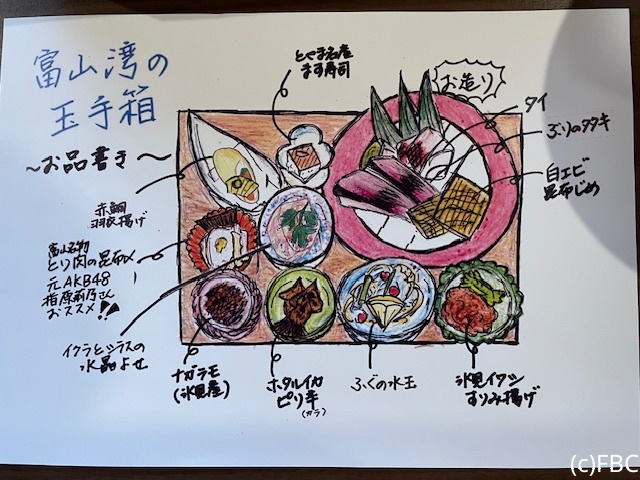 富山湾の
玉手箱
〜お品書き〜
とやま名産
ます寿司
お造り
タイ
ぶりのタタキ
白エビ
昆布じめ
赤鯛
羽衣揚げ
富山名物
とり肉の昆布〆
元AKB48
指原莉乃さん
おススメ!!
イクラとシラスの
水晶よせ
ナガラモ
(氷見産)
ホタルイカ
ピリ辛
(カラ)
ふぐの水玉
氷見イワシ
すりみ揚げ
(c)FBC